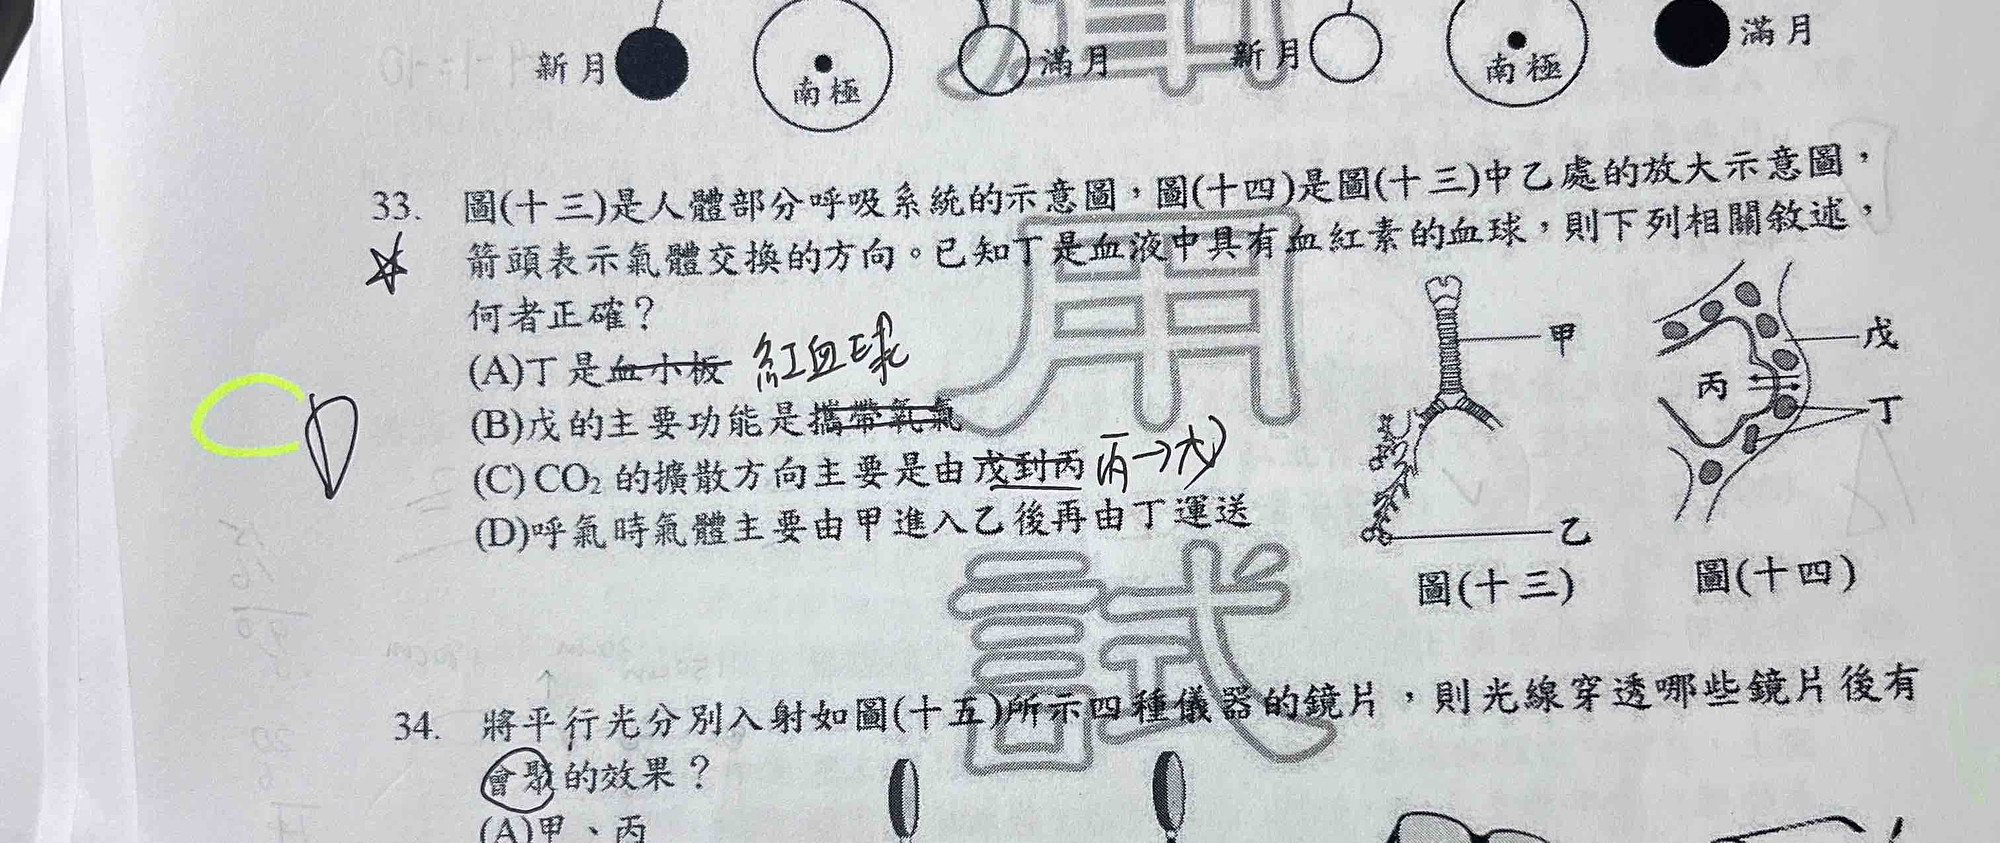 新月
南極
滿月
新月
南極
滿月
33. 圖(十三)是人體部分呼吸系統的示意圖,圖(十四)是圖(十三)中乙處的放大示意圖,
箭頭表示氣體交換的方向。已知丁是血液中具有血紅素的血球,則下列相關敘述,
何者正確?
(A)丁是血小板 紅血球
(B)戊的主要功能是攜帶氧氣
(C) CO₂ 的擴散方向主要是由戊到丙 丙→戊
(D)呼氣時氣體主要由甲進入乙後再由丁運送
D
甲
乙
圖(十三)
戊
丙
丁
圖(十四)
用
試
34. 將平行光分別入射如圖(十五)所示四種儀器的鏡片,則光線穿透哪些鏡片後有
會聚的效果?
(A)甲、丙